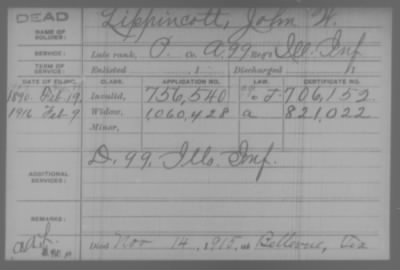 DEAD
NAME OF SOLDIER: Lippincott, John W.
SERVICE: Late rank, P. Co. A. 99 Reg't Ill. Inf.
TERM OF SERVICE: Enlisted , 1 Discharged , 1
DATE OF FILING. CLASS. APPLICATION NO. LAW. CERTIFICATE NO.
1890. Feb. 19. Invalid, 756,540 706,152
1916 Feb. 9 Widow, 1,060,428 a 821,022
Minor,
ADDITIONAL SERVICES: D. 99, Ills. Inf.
REMARKS:
Died Nov 14, 1915, at Bellevue, Tex